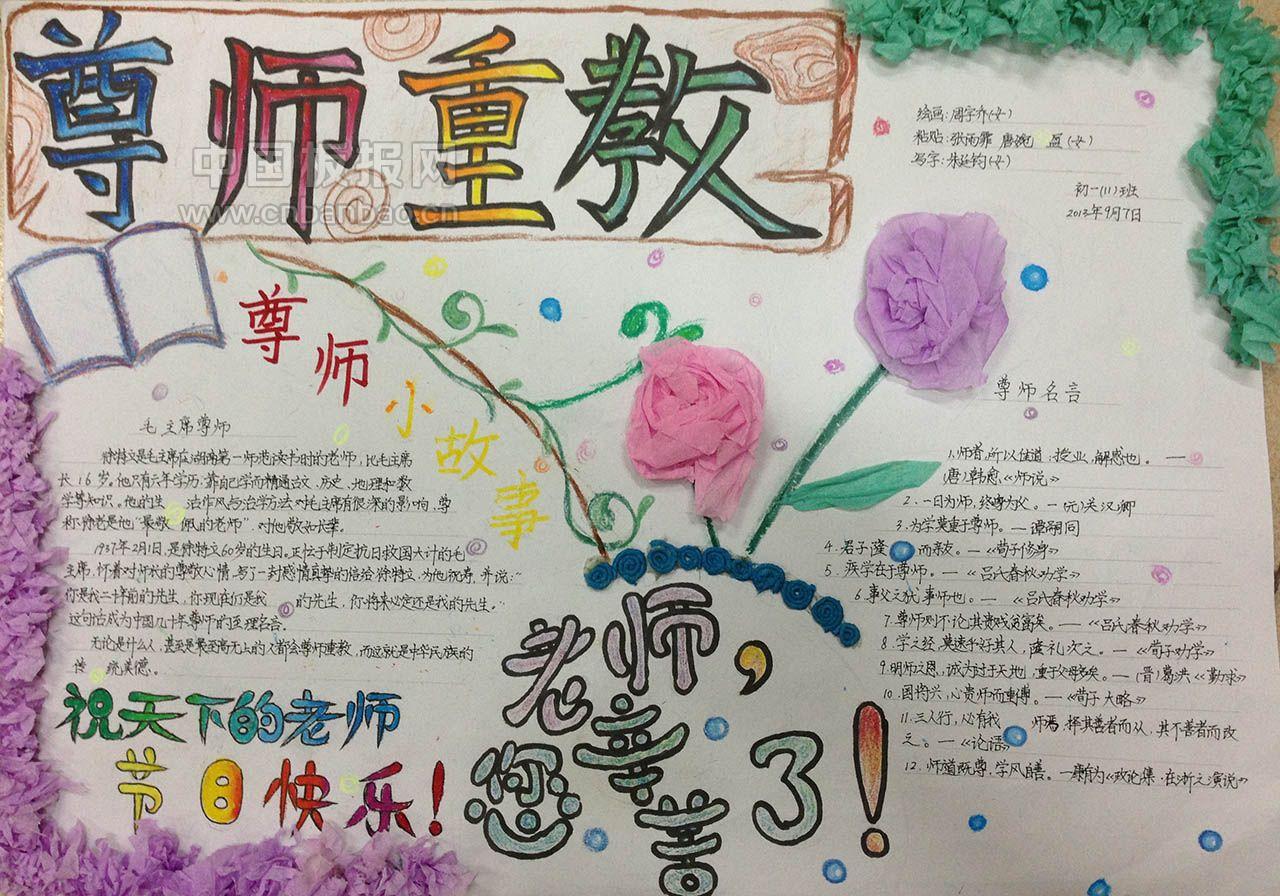 尊师重教
中国板报网
www.cnbanbao.cn
绘画:周宇乔(女)
粘贴:张雨霏 唐婉盈(女)
写字:朱延钧(女)
初一(11)班
2013年9月7日
尊师小故事
毛主席尊师
徐特立是毛主席在湖南第一师范读书时的老师,比毛主席
长16岁。他只有六年学历,靠自己学而精通古文、历史、地理和数
学等知识。他的生 治作风与治学方法对毛主席有很深的影响,尊
称徐老是他“最敬佩的老师”,对他敬如
1937年2月1日,是徐特立60岁的生日。正忙于制定抗日救国大计的毛
主席,怀着对师长的尊敬心情,写了一封感情真挚的信给徐特立,为他祝寿,并说:“
你是我二十年前的先生,你现在仍是我 的先生,你将来必定还是我的先生。”
这句话成为中国几十年尊师的至理名言。
无论是什么人,甚至是最至高无上的人都会尊师重教,而这就是中华民族的
传统美德。
祝天下的老师
节日快乐!
老师,
您辛苦了!
尊师名言
1.师者,所以传道,授业,解惑也。—
(唐)韩愈《师说》
2.一日为师,终身为父。—(元)关汉卿
3.为学莫重于尊师。—谭嗣同
4.君子隆 而亲友。—《荀子修身》
5.疾学在于尊师。—《吕氏春秋劝学》
6.事父之犹事师也。—《吕氏春秋劝学》
7.尊师则不论其贵贱贫富矣。—《吕氏春秋劝学》
8.学之经,莫速乎好其人,隆礼次之。—《荀子劝学》
9.明师之恩,诚为过于天地,重于父母多矣。—(晋)葛洪《勤求》
10.国将兴,心贵师而重傅。—《荀子大略》
11.三人行,必有我 师焉,择其善者而从,其不善者而改
之。—《论语》
12.师道既尊,学风自善。—康有为《政论集·在浙之演说》